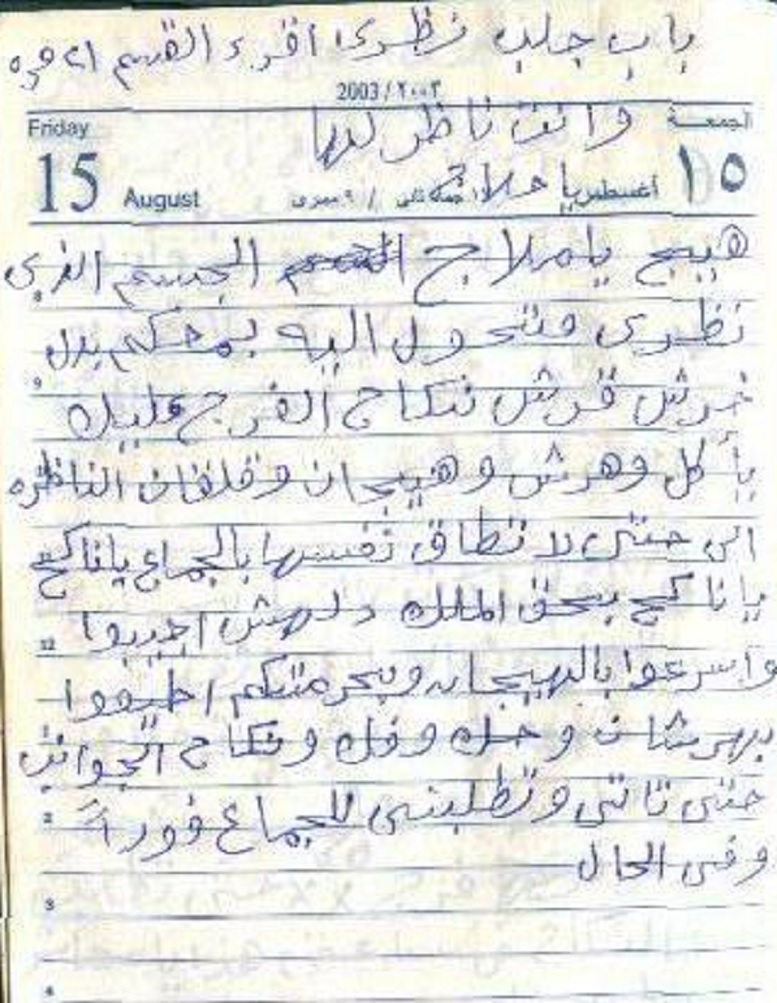 باب جلب نظرى اقرء القسم ٢١ مره
2003 / ٢٠٠٣
Friday وانت ناظر لها الجمعة
15 August يا حلاج أغسطس ١٥
هيج يا ملاج الجسم الذى
نظرى فتحول اليه بمحكم بدل
خرش قرش نكاح الفرج عليك
يأكل وهرش وهيجان وقلقان الناظره
الى حتى لا تطاق نفسها بالجماع يا ناكح
يا ناكح بحق الملك دلهش اجيبوا
12
واسرعوا بالهيجان وبحرمتكم اجيبوا
بهرشان وحك وفك ونكاح الجوانب
حتى تاتى وتطلبنى للجماع فورا
2
وفى الحال
3
4